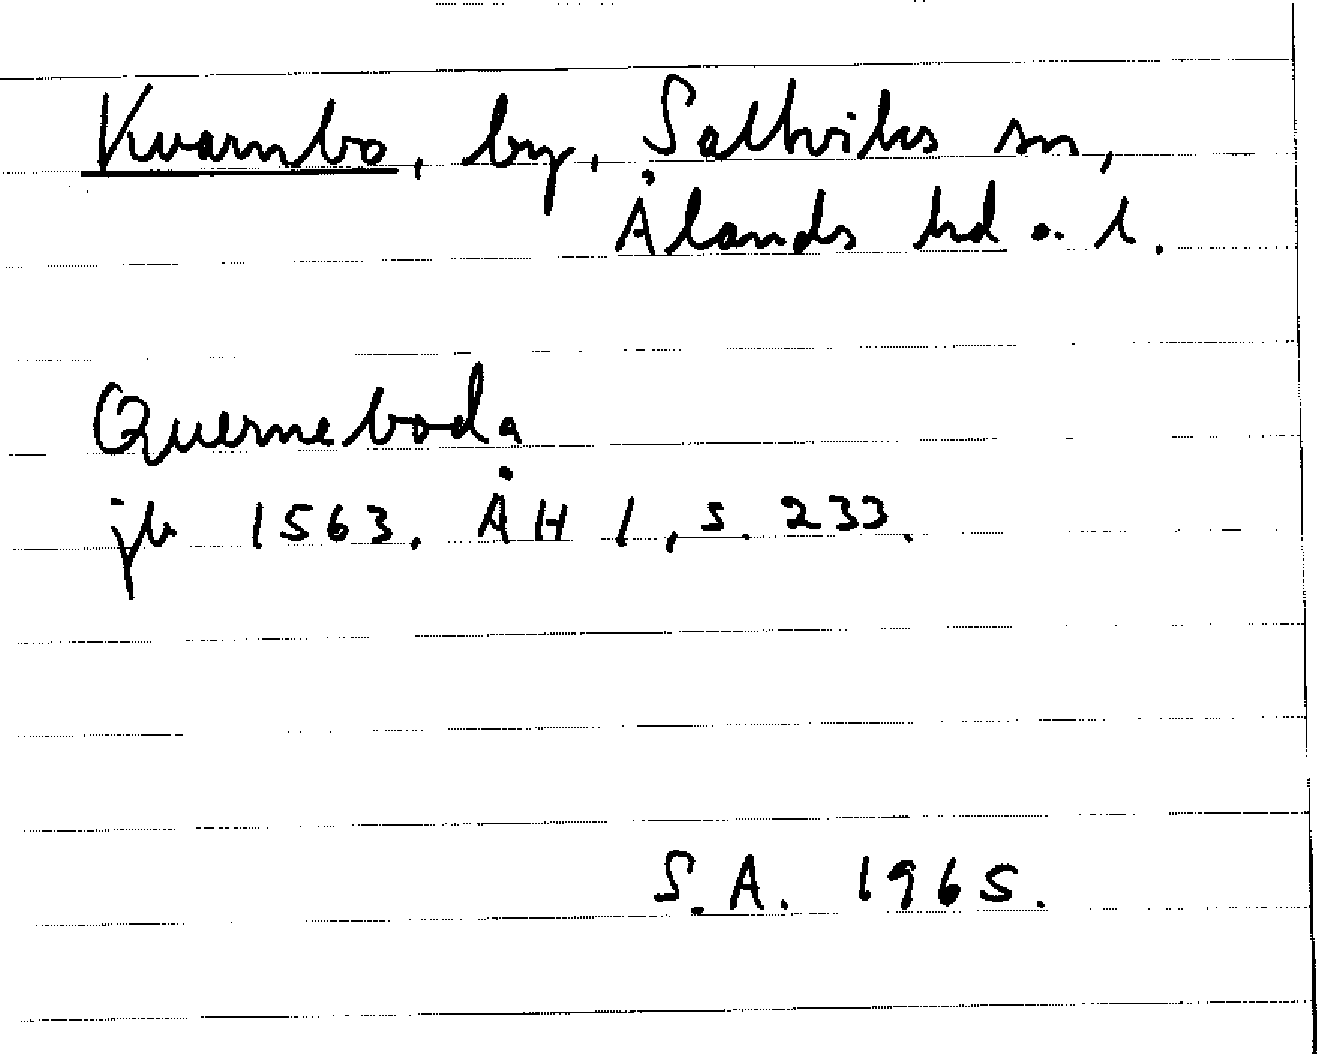 Kvarnbo, by, Saltviks sn,
Ålands hd o. l.
Querneboda
jb 1563. ÅH 1, s. 233.
S.A. 1965.